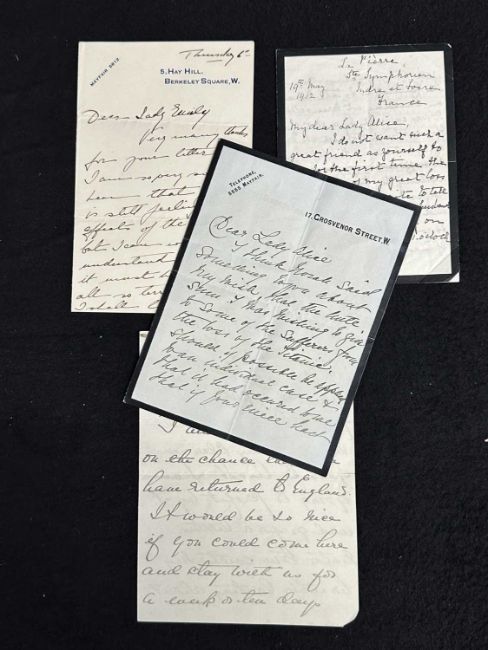 MAYFAIR 3812
Thursday 6th
5, HAY HILL,
BERKELEY SQUARE, W.
Dear Lady Emily
Very many thanks
for your letter
I am so very
hear that
is still feeling
effects of the
but I can
understand
it must be
all so
I shall
La Pierre,
Ste Symphorien
Indre et Loire
France
19th May
1912
My dear Lady Alice,
I do not want such a
great friend as yourself to
for the first time, the
of my great loss
to tell
on
TELEPHONE,
5555 MAYFAIR.
17, GROSVENOR STREET, W.
Dear Lady Alice
I think said
something to you about
my wish that the little
sum I was wishing to give
to some of the sufferers from
the loss by the Titanic,
should if possible be applied
to an individual case &
that it had occurred to me
that if your niece had
I
on the chance
have returned to England.
It would be so nice
if you could come here
and stay with us for
a week or ten days